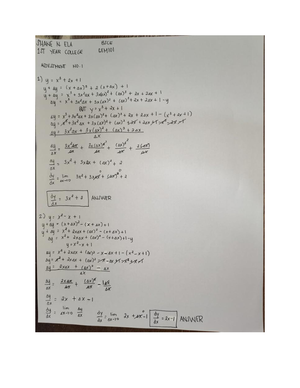 SHANE N. ELA BSCE
1ST YEAR COLLEGE
ASSESSMENT NO. 1
1) y = x³ + 2x + 1
y + Δy = (x + Δx)³ + 2(x + Δx) + 1
y + Δy = x³ + 3x²Δx + 3x(Δx)² + (Δx)³ + 2x + 2Δx + 1
Δy = x³ + 3x²Δx + 3x(Δx)² + (Δx)³ + 2x + 2Δx + 1 - y
but y = x³ + 2x + 1
Δy = x³ + 3x²Δx + 3x(Δx)² + (Δx)³ + 2x + 2Δx + 1 - (x³ + 2x + 1)
Δy = x³ + 3x²Δx + 3x(Δx)² + (Δx)³ + 2x + 2Δx + 1 - x³ - 2x - 1
Δy = 3x²Δx + 3x(Δx)² + (Δx)³ + 2Δx
Δx
Δy/Δx = 3x²Δx/Δx + 3x(Δx)²/Δx + (Δx)³/Δx + 2Δx/Δx
Δy/Δx = 3x² + 3xΔx + (Δx)² + 2
dy/dx = lim Δx→0 3x² + 3xΔx + (Δx)² + 2
dy/dx = 3x² + 2 ANSWER
2) y = x² - x + 1
y + Δy = (x + Δx)² - (x + Δx) + 1
y + Δy = x² + 2xΔx + (Δx)² - (x + Δx) + 1
Δy = x² + 2xΔx + (Δx)² - (x + Δx) + 1 - y
y = x² - x + 1
Δy = x² + 2xΔx + (Δx)² - x - Δx + 1 - (x² - x + 1)
Δy = x² + 2xΔx + (Δx)² - x - Δx + 1 - x² + x - 1
Δy = 2xΔx + (Δx)² - Δx
Δx
Δy/Δx = 2xΔx/Δx + (Δx)²/Δx - Δx/Δx
Δy/Δx = 2x + Δx - 1
dy/dx = lim Δx→0 Δy/Δx dy/dx = lim Δx→0 2x + Δx - 1 dy/dx = 2x - 1 ANSWER